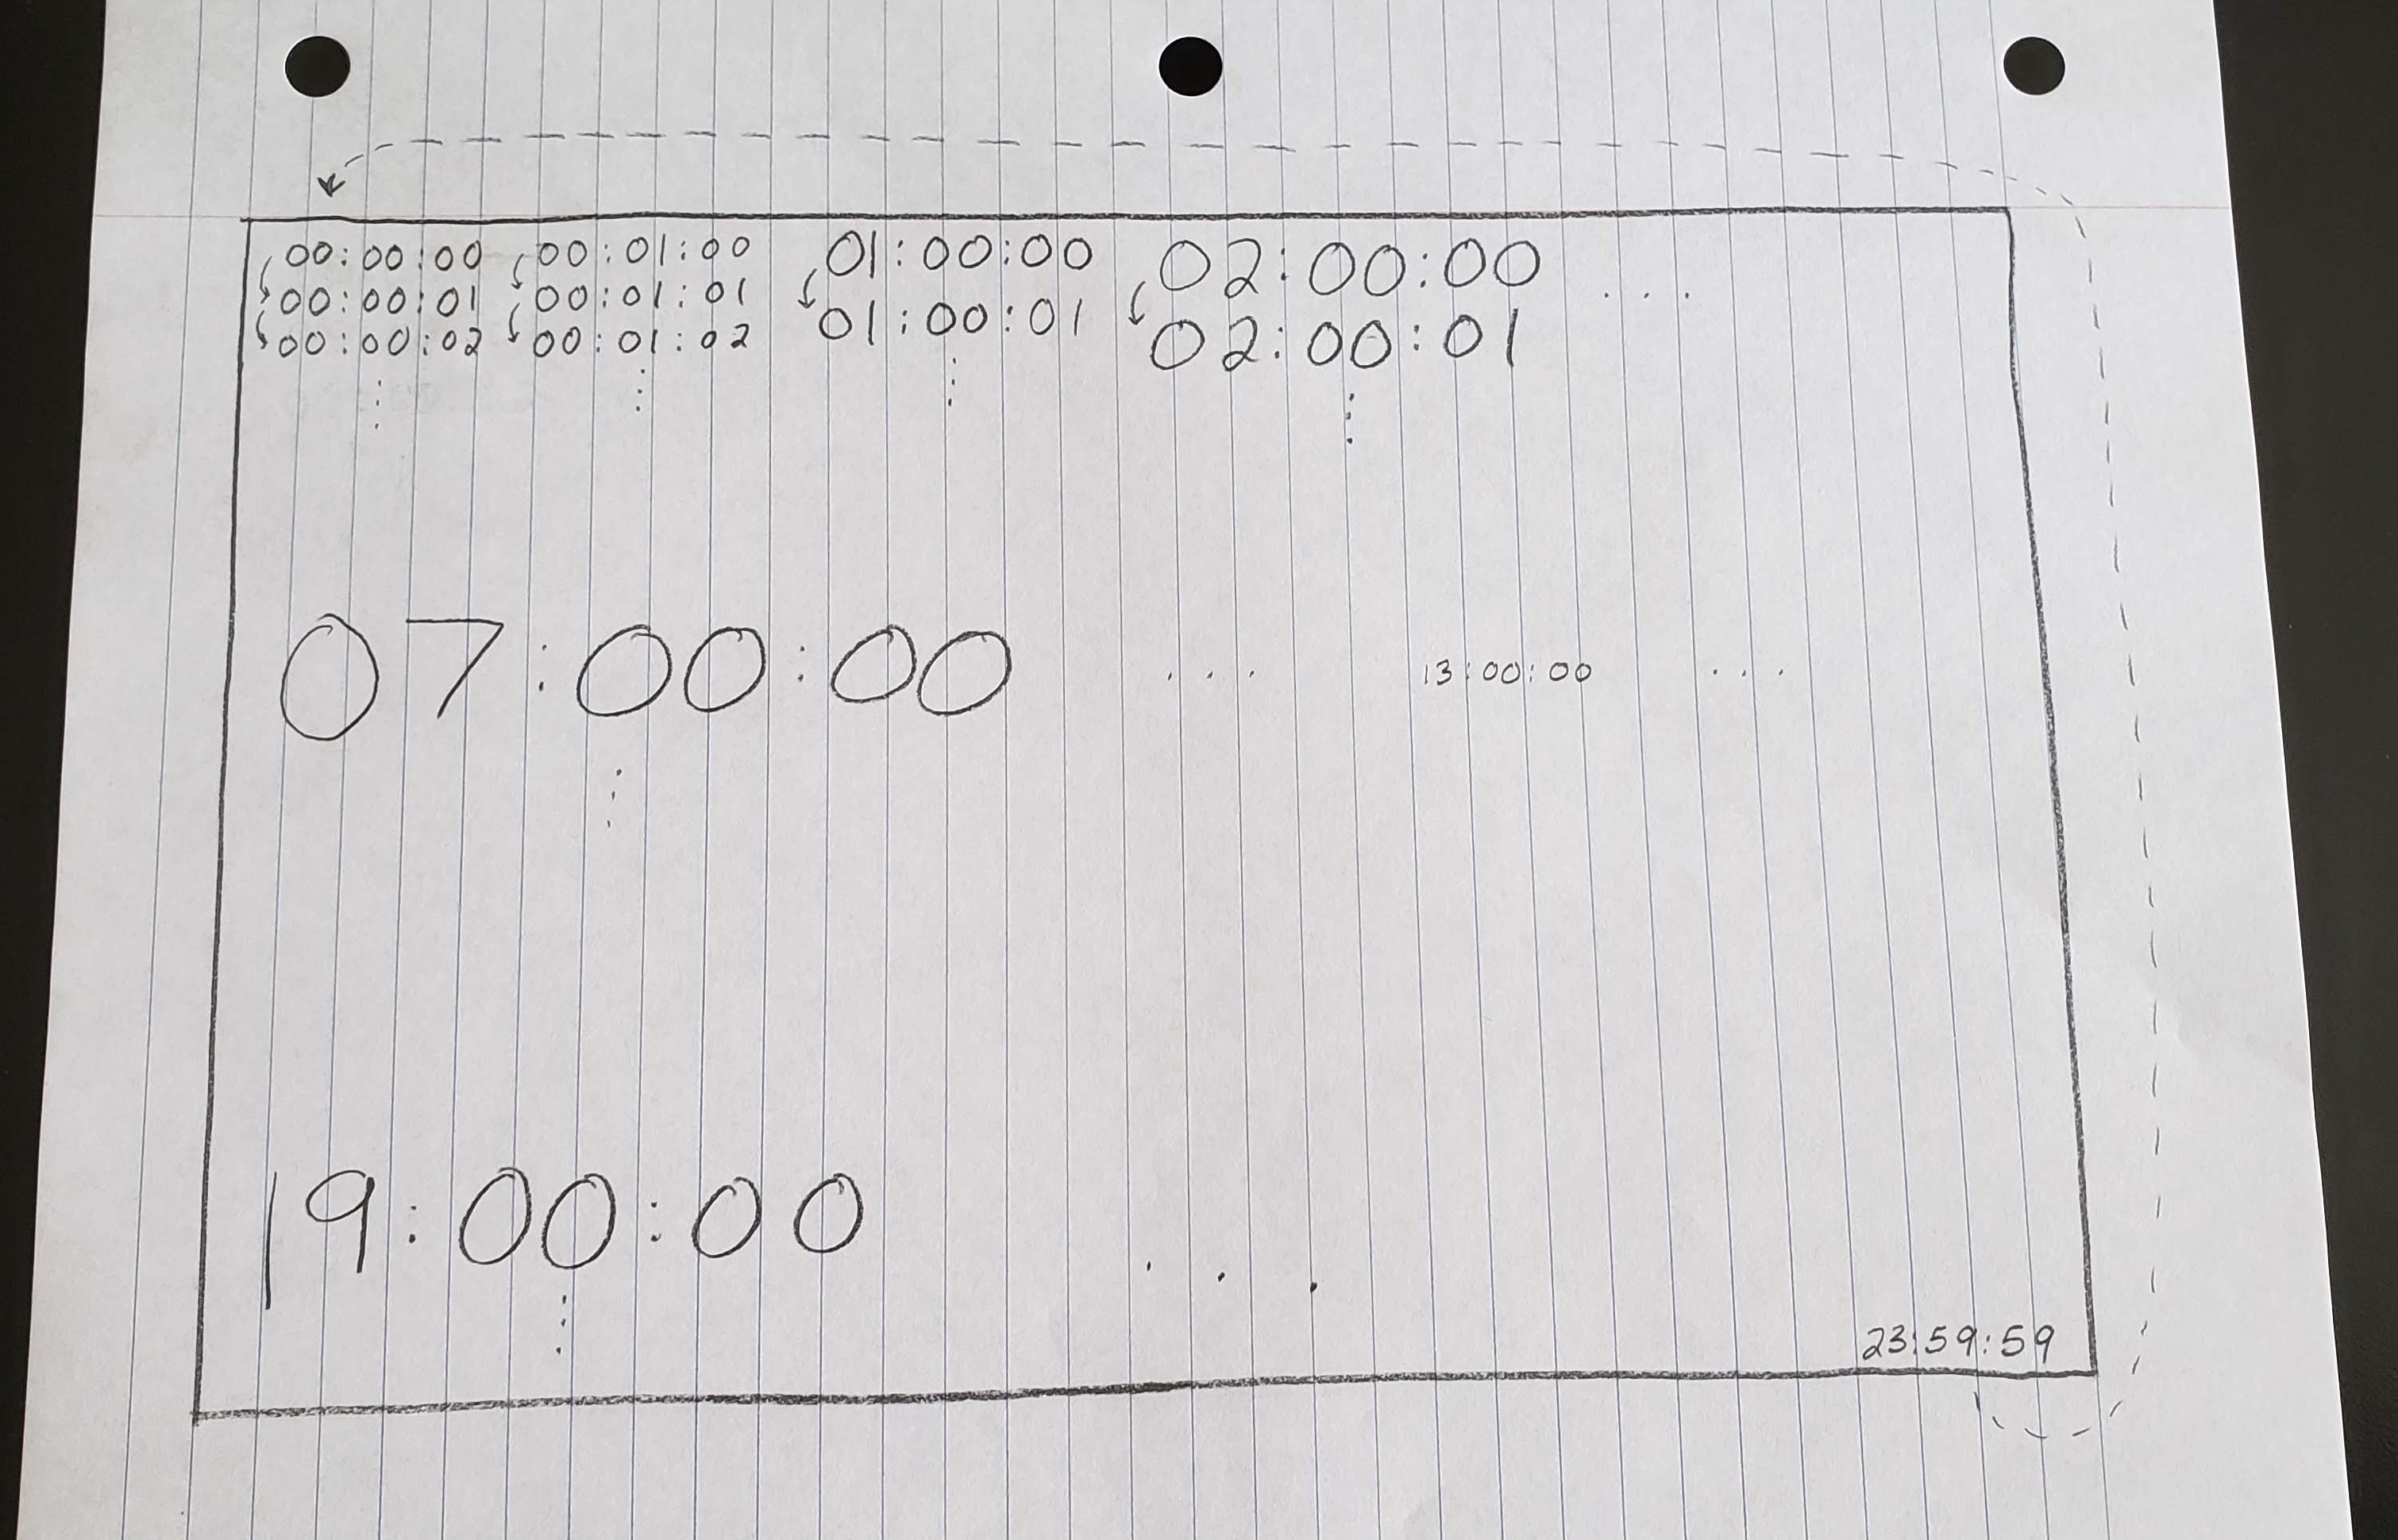 00:00:00 00:01:00 01:00:00 02:00:00 ...
00:00:01 00:01:01 01:00:01 02:00:01
00:00:02 00:01:02
07:00:00 ... 13:00:00 ...
19:00:00 ...
23:59:59